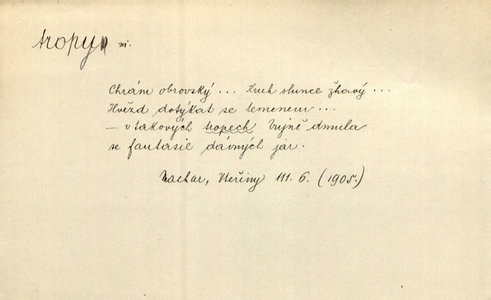 tropy m.
Chrám obrovský ... Kruh slunce žhavý ...
Hvězd dotýkat se temenem ...
— v takových tropech bujně dmula
se fantasie dávných jar.
Machar, Vteřiny 111. 6. (1905.)